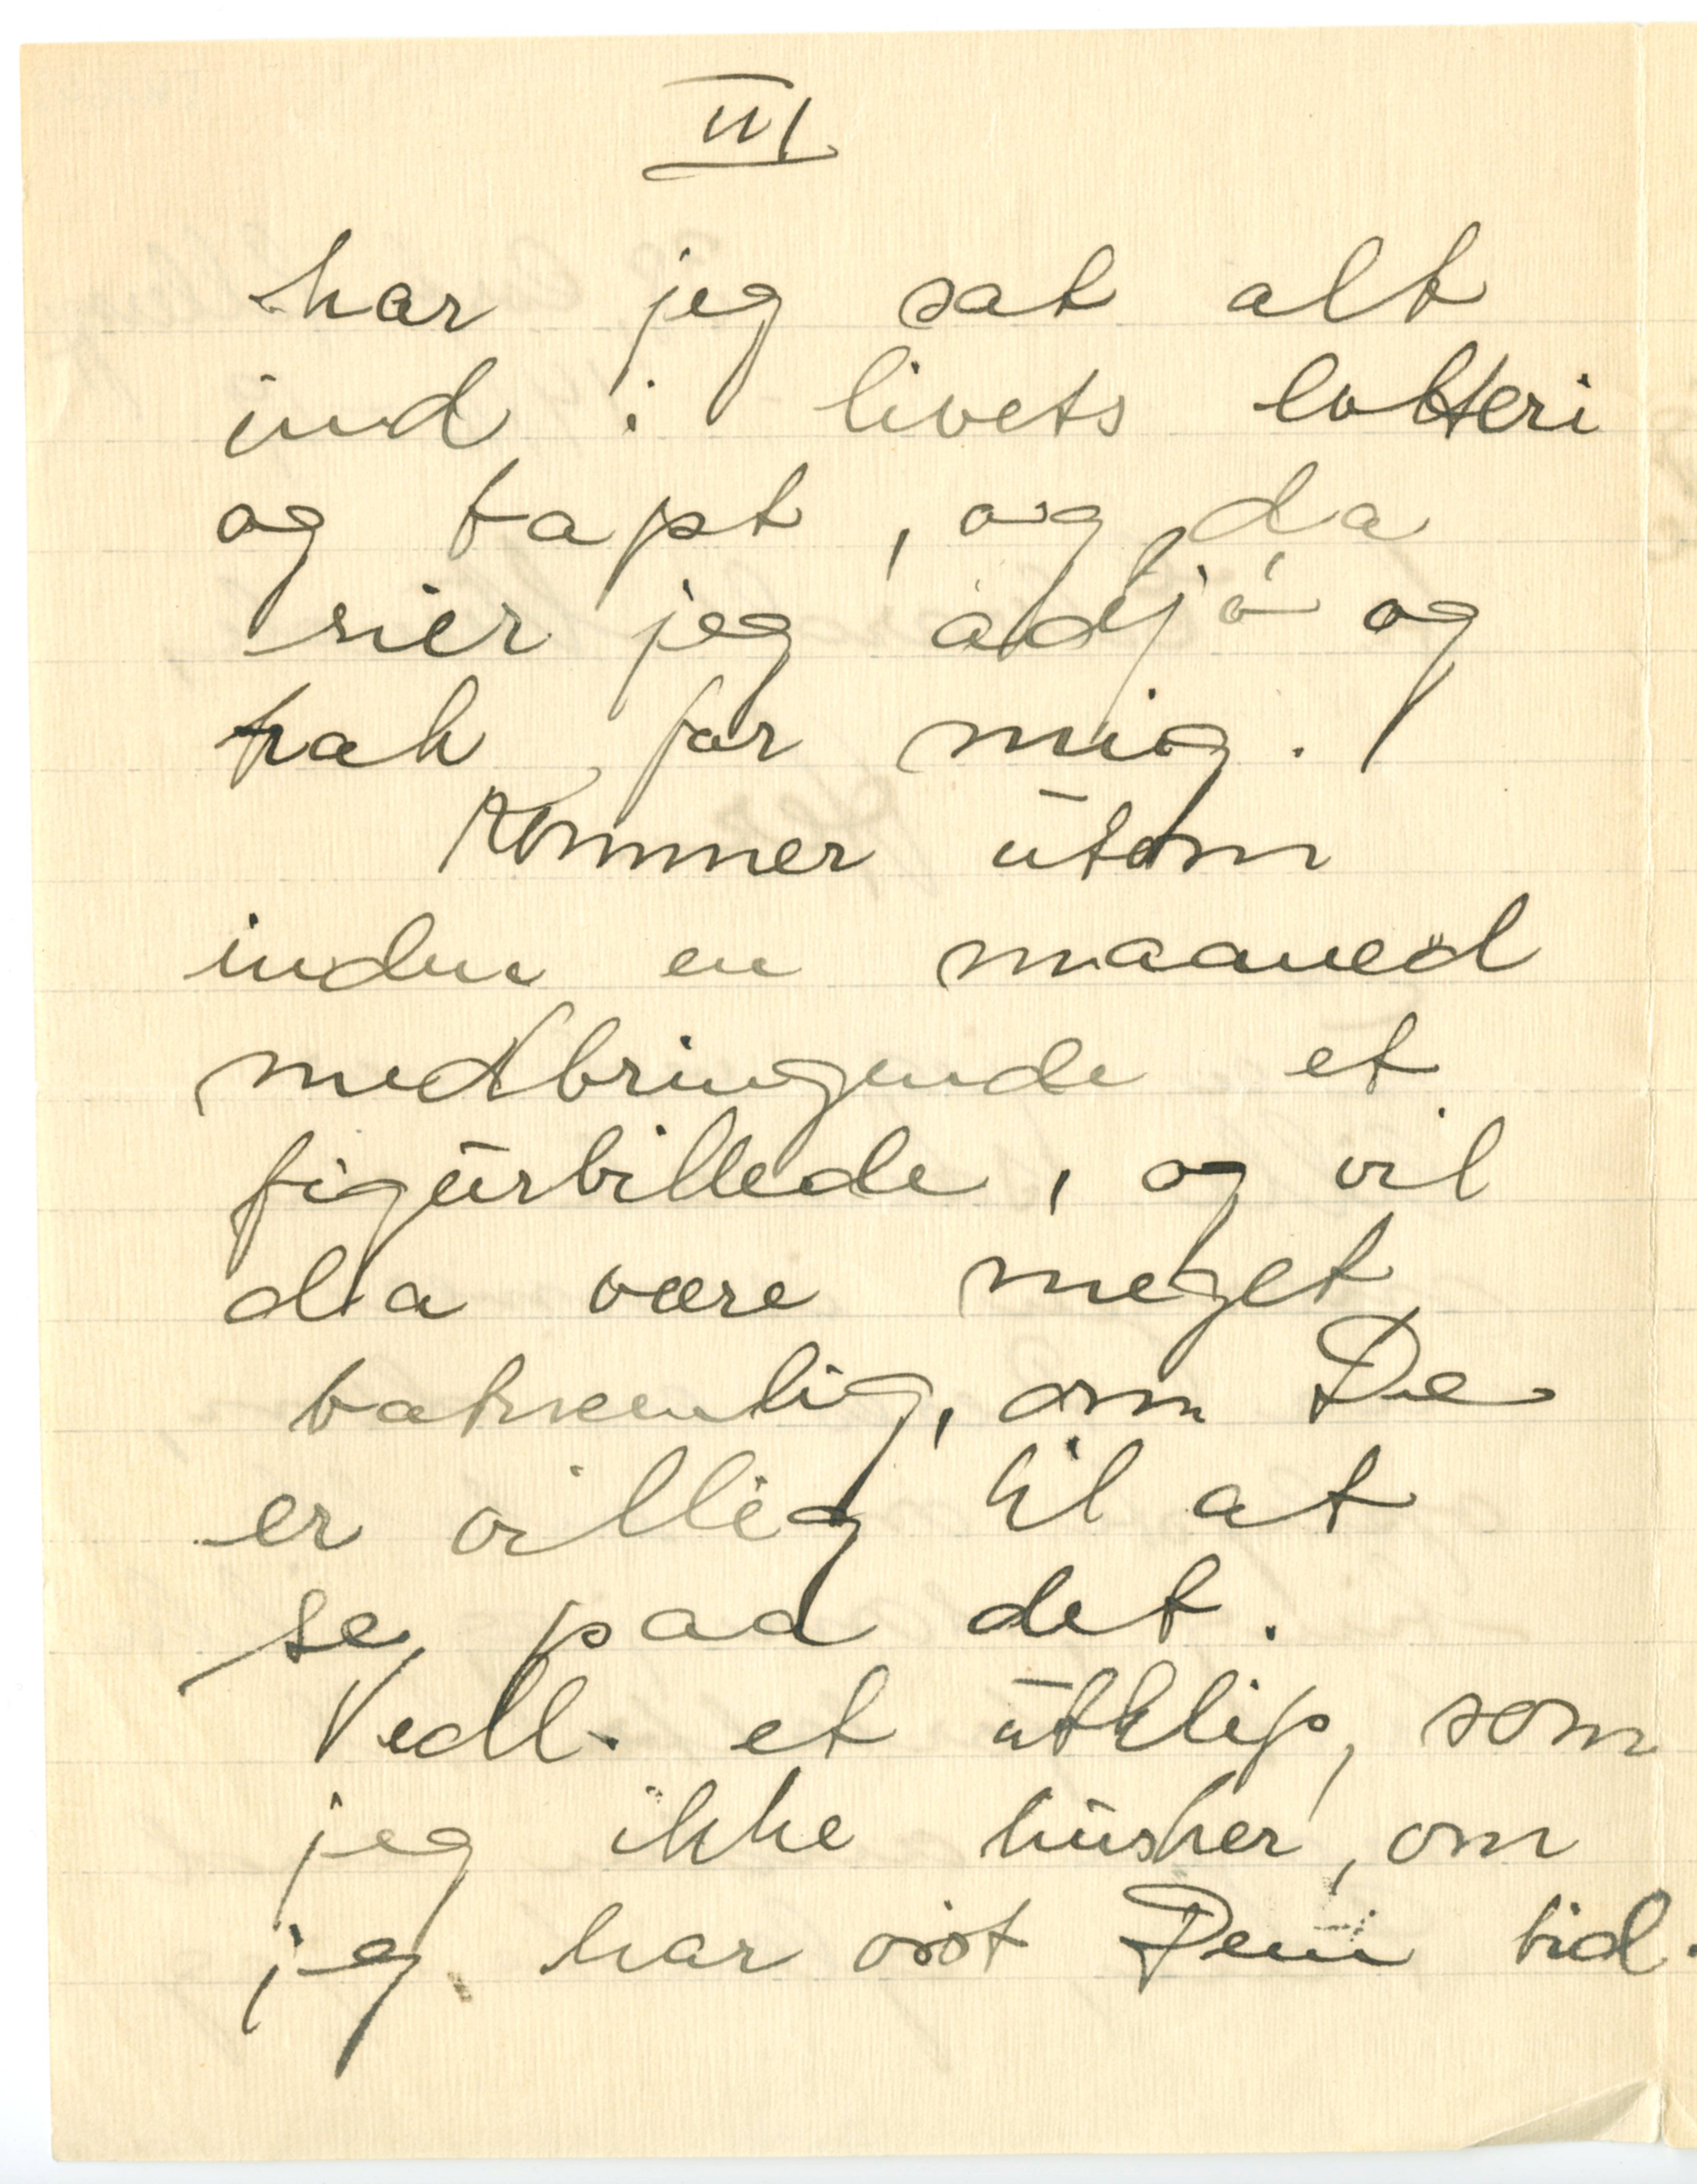 III
har jeg sat alt
ind i livets lotteri
og tapt, og da
sier jeg adjø og
tak for mig.
Kommer utom
inden en maaned
medbringende et
figurbillede, og vil
da være meget
taknemlig, om De
er villig til at
se paa det.
Vedl. et utklip, som
jeg ikke husker, om
jeg har vist Dem tid.